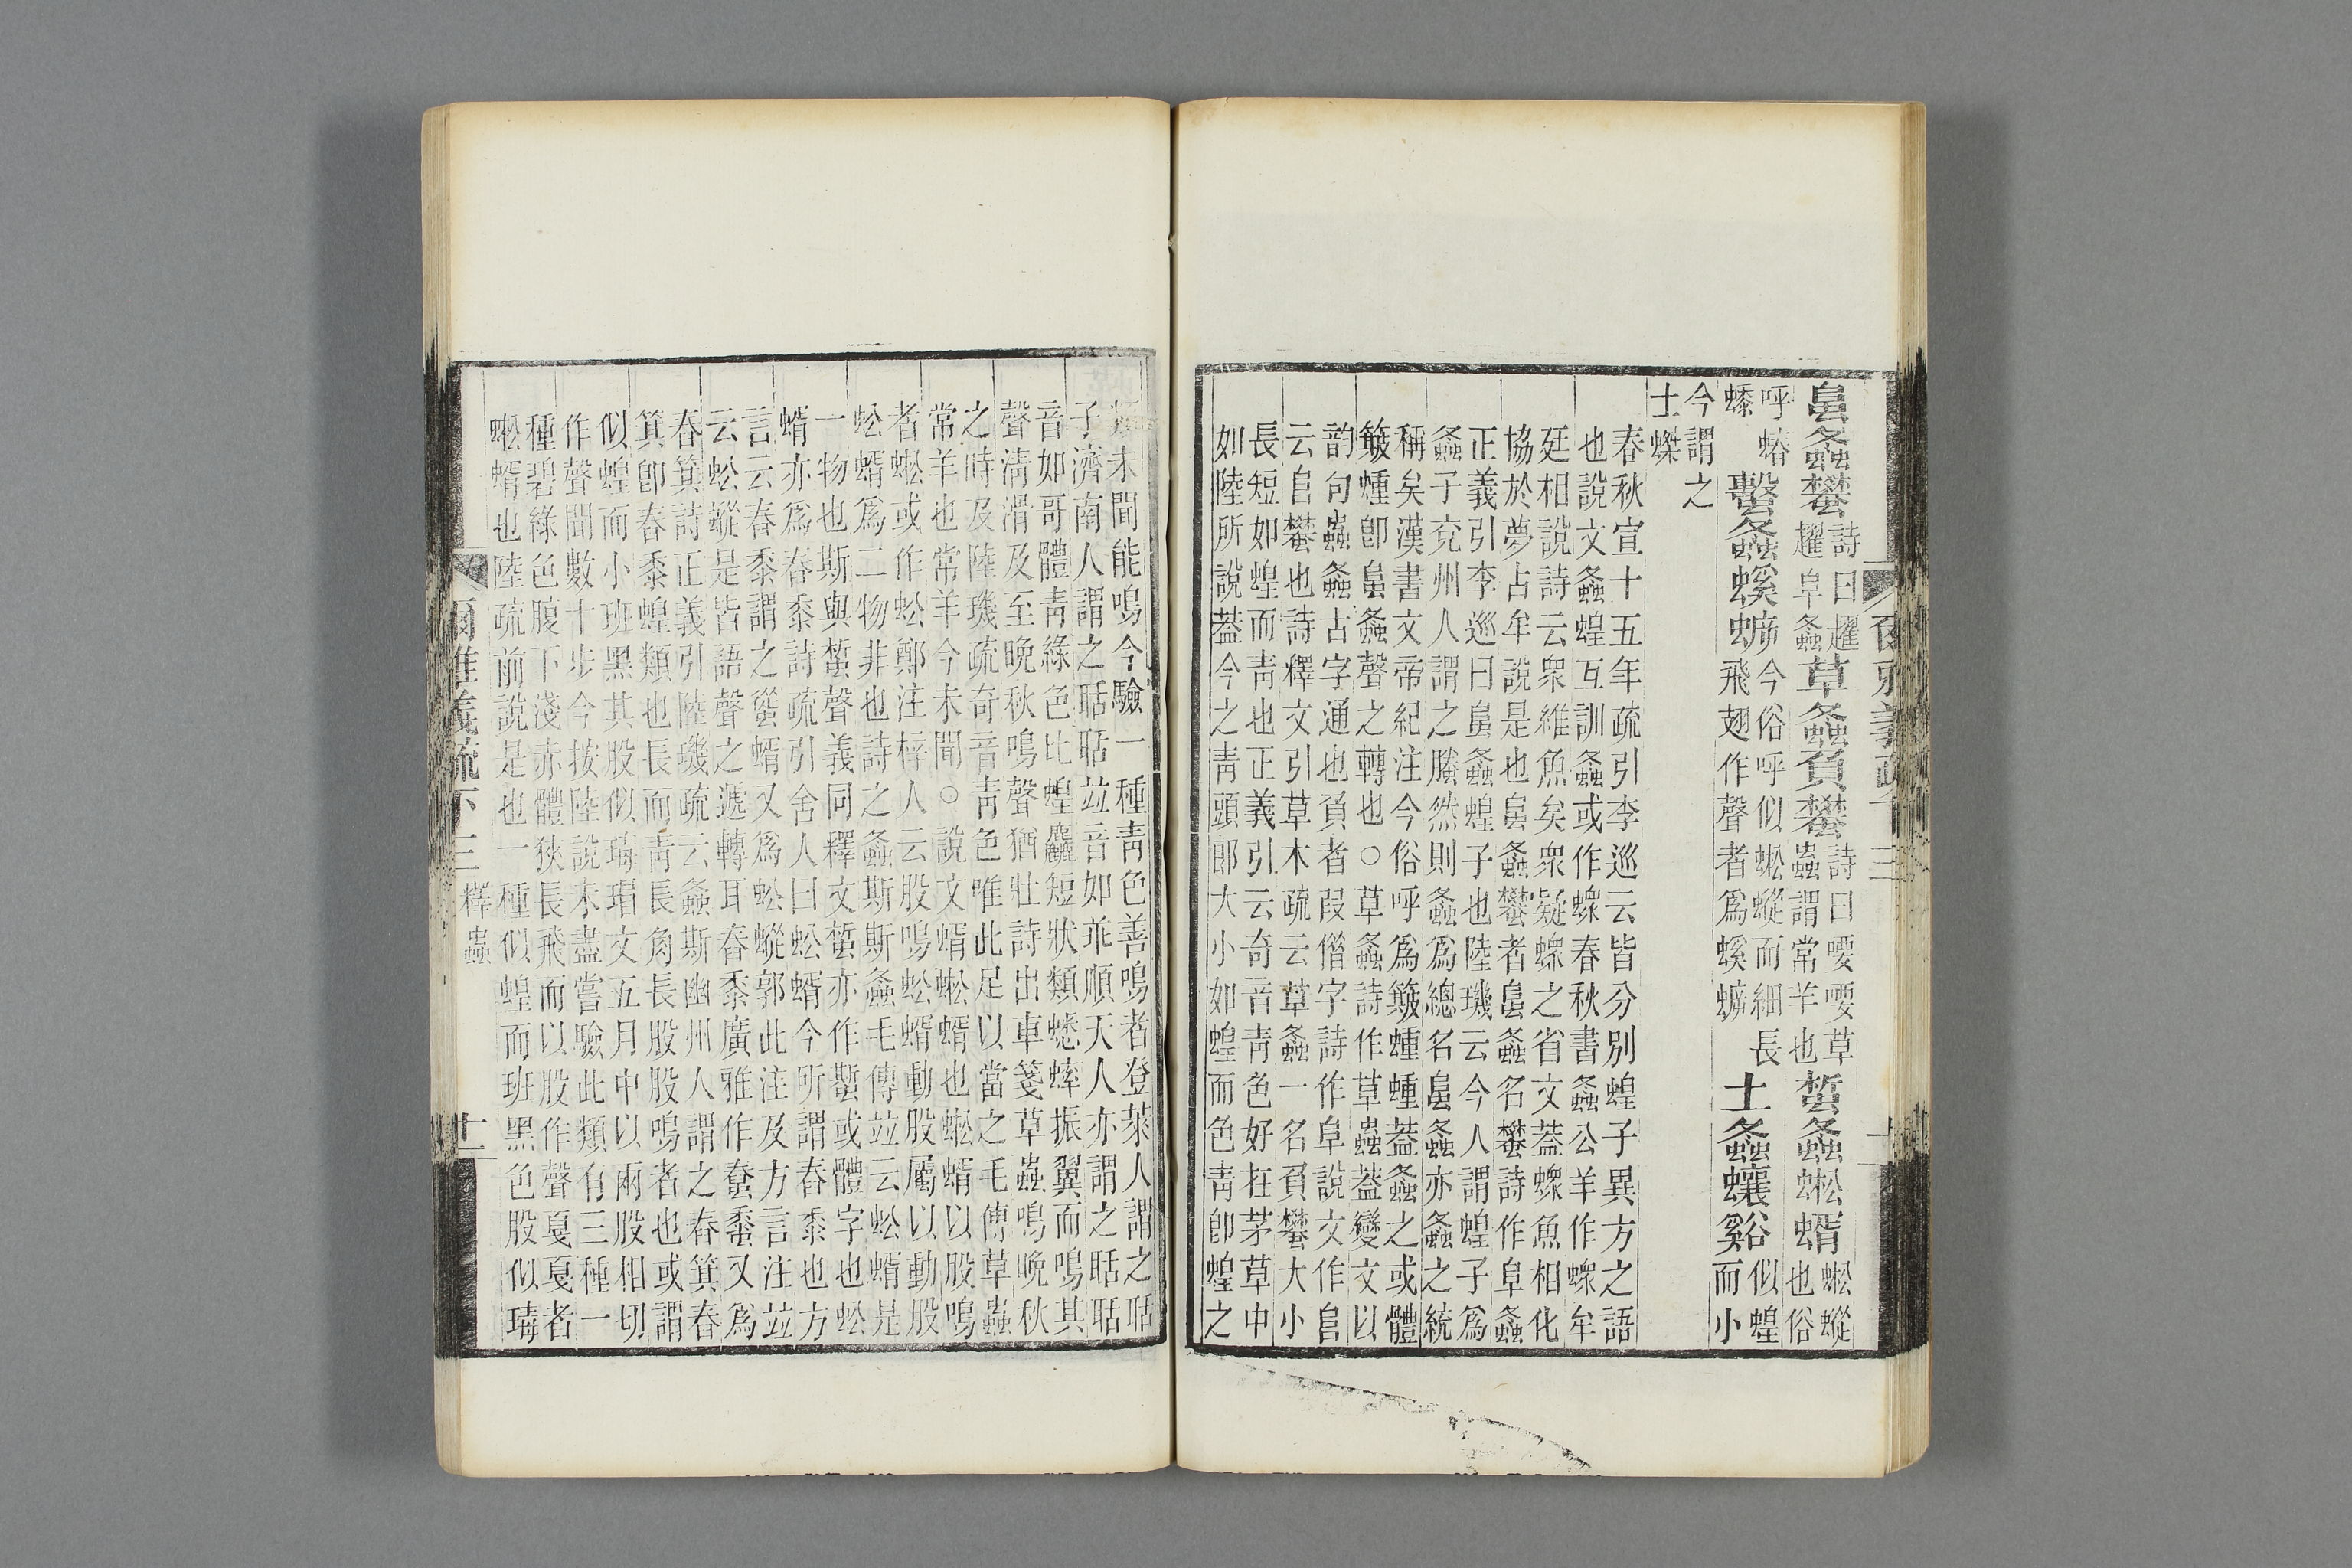 蛗螽蠜詩曰趯趯阜螽草螽負蠜詩曰喓喓草蟲謂常羊也蜤螽蜙蝑蜙䗥也俗
呼蝽𧑓蟿螽螇蚸今俗呼似蜙䗥而細長飛翅作聲者爲螇蚸土螽蠰谿似蝗而小
今謂之土蠂
春秋宣十五年疏引李巡云皆分別蝗子異方之語
也說文螽蝗互訓螽或作蠓春秋書螽公羊作蠓牟
廷相說詩云衆維魚矣衆疑蠓之省文葢蠓魚相化
協於夢占牟說是也蛗螽蠜者蛗螽名蠜詩作阜螽
正義引李巡曰蛗螽蝗子也陸璣云今人謂蝗子爲
螽子兖州人謂之螣然則螽爲總名蛗螽亦螽之統
稱矣漢書文帝紀注今俗呼爲簸蝩蝩葢螽之或體
簸蝩卽蛗螽聲之轉也○草螽詩作草蟲葢變文以
韵句蟲螽古字通也負者叚借字詩作阜說文作𨸏
云𨸏蠜也詩釋文引草木疏云草螽一名負蠜大小
長短如蝗而靑也正義引云奇音靑色好在茅草中
如陸所說葢今之靑頭郎大小如蝗而色靑卽蝗之
類未聞能鳴今驗一種靑色善鳴者登萊人謂之聒
子濟南人謂之聒聒竝音如乖順天人亦謂之聒聒
音如哥體靑綠色比蝗麤短狀類蟋蟀振翼而鳴其
聲淸滑及至晚秋鳴聲猶壯詩出車箋草蟲鳴晚秋
之時及陸璣疏奇音靑色唯此足以當之毛傳草蟲
常羊也常羊今未聞○說文蝑蜙蝑也蜙蝑以股鳴
者蜙或作蚣鄭注梓人云股鳴蚣蝑動股屬以動股
蚣蝑爲二物非也詩之螽斯斯螽毛傳竝云蚣蝑是
一物也斯與蜤聲義同釋文蜤亦作蟴或體字也蚣
蝑亦爲舂黍詩疏引舍人曰蚣蝑今所謂舂黍也方
言云舂黍謂之蜙蝑又爲蚣䗥郭此注及方言注竝
云蚣䗥是皆語聲之遞轉耳舂黍廣雅作𧐍𧑓又爲
春箕詩正義引陸璣疏云螽斯幽州人謂之舂箕舂
箕卽舂黍蝗類也長而靑長角長股股鳴者也或謂
似蝗而小班黑其股似瑇瑁文五月中以兩股相切
作聲聞數十步今按陸說未盡嘗驗此類有三種一
種碧綠色腹下淺赤體狹長飛而以股作聲戛戛者
蜙蝑也陸疏前說是也一種似蝗而班黑色股似瑇
爾雅義疏下三　釋蟲　十一